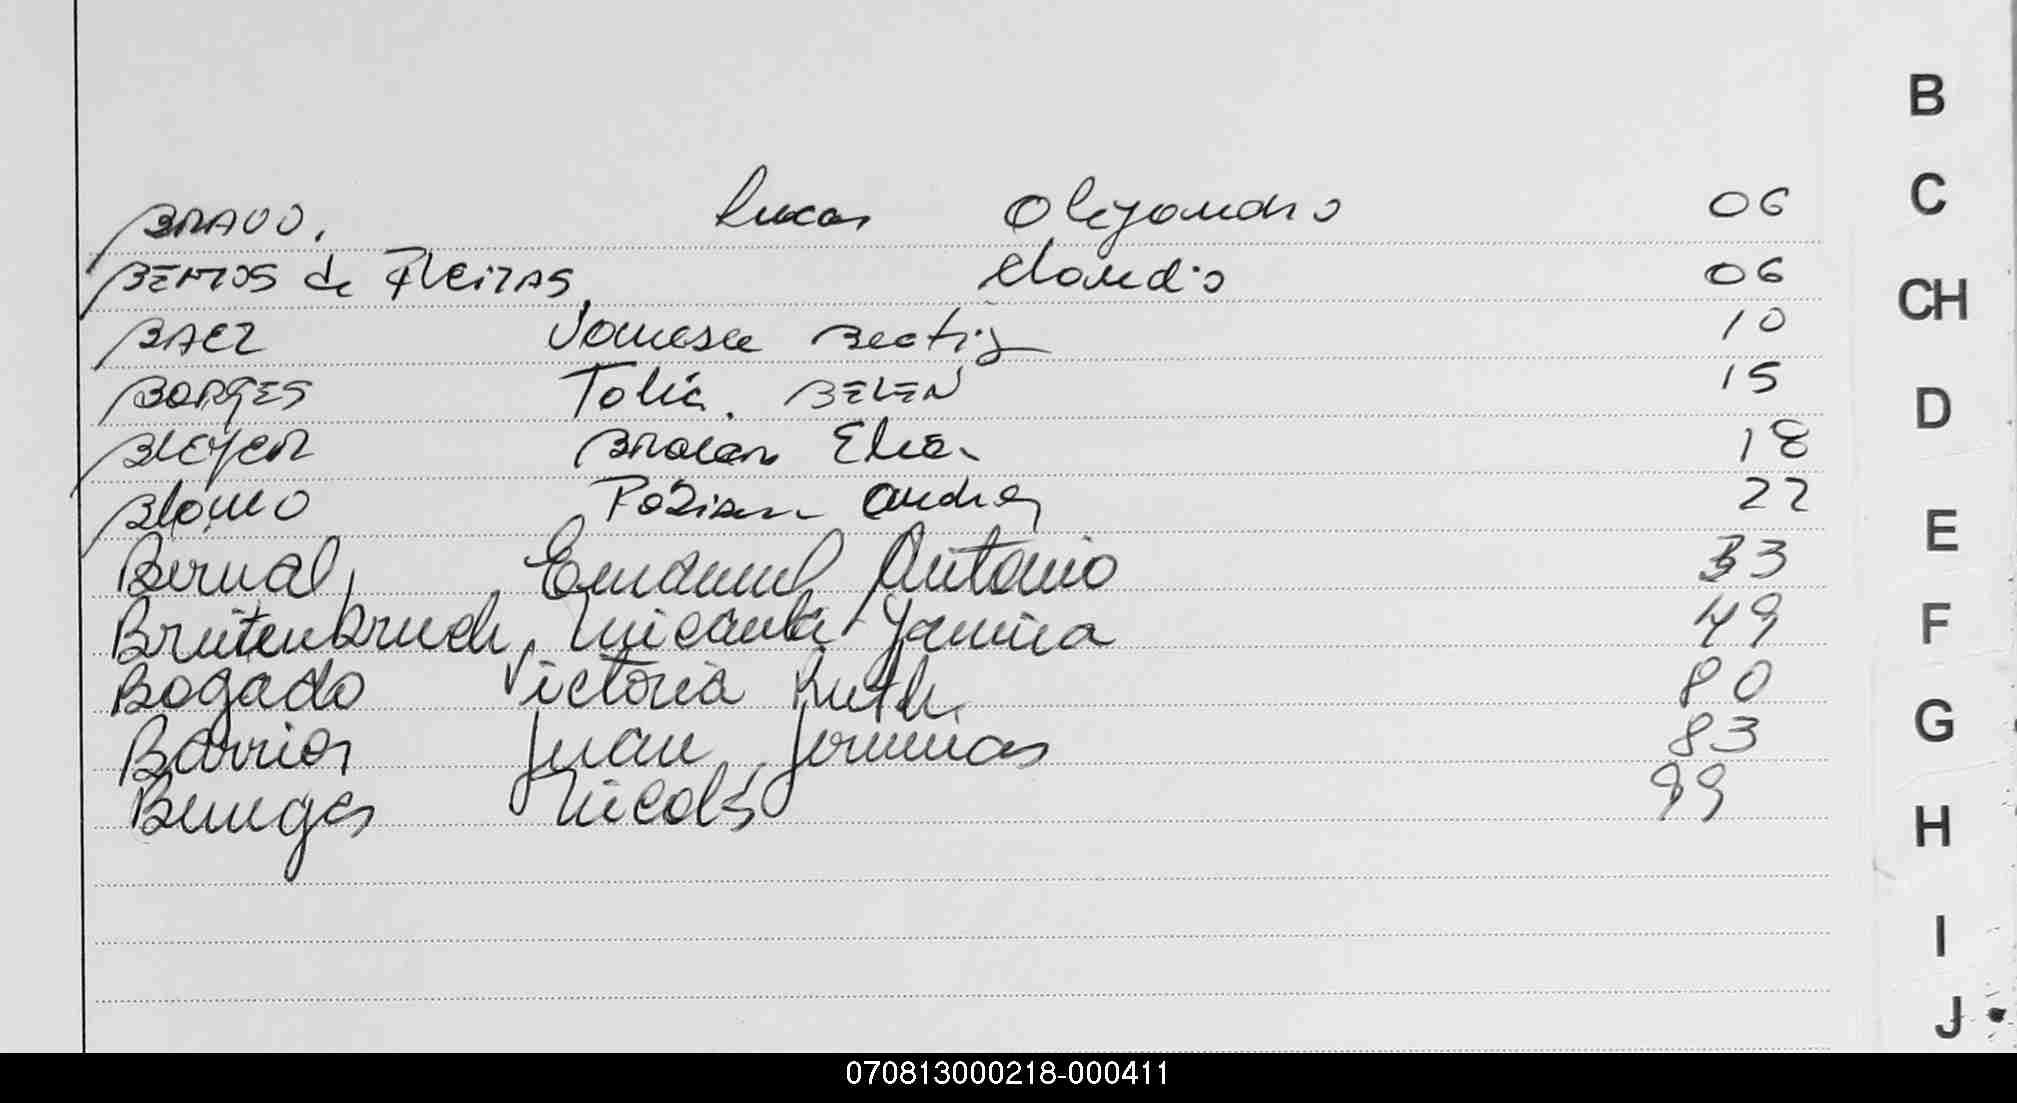 BRAVO, Lucas Alejandro 06
BENTOS de FLEITAS, Claudio 06
BAEZ Vanesa Beatriz 10
BORGES Talia. BELEN 15
BLEYER BRAIAN Elias 18
Blanco Fabian Andres 22
Bernal, Emanuel Antonio 33
Breitenbruch, Micaela Yamila 49
Bogado Victoria Ruth. 80
Barrios Juan Jeremias 83
Benegas Nicolás 99
B
C
CH
D
E
F
G
H
I
J
070813000218-000411